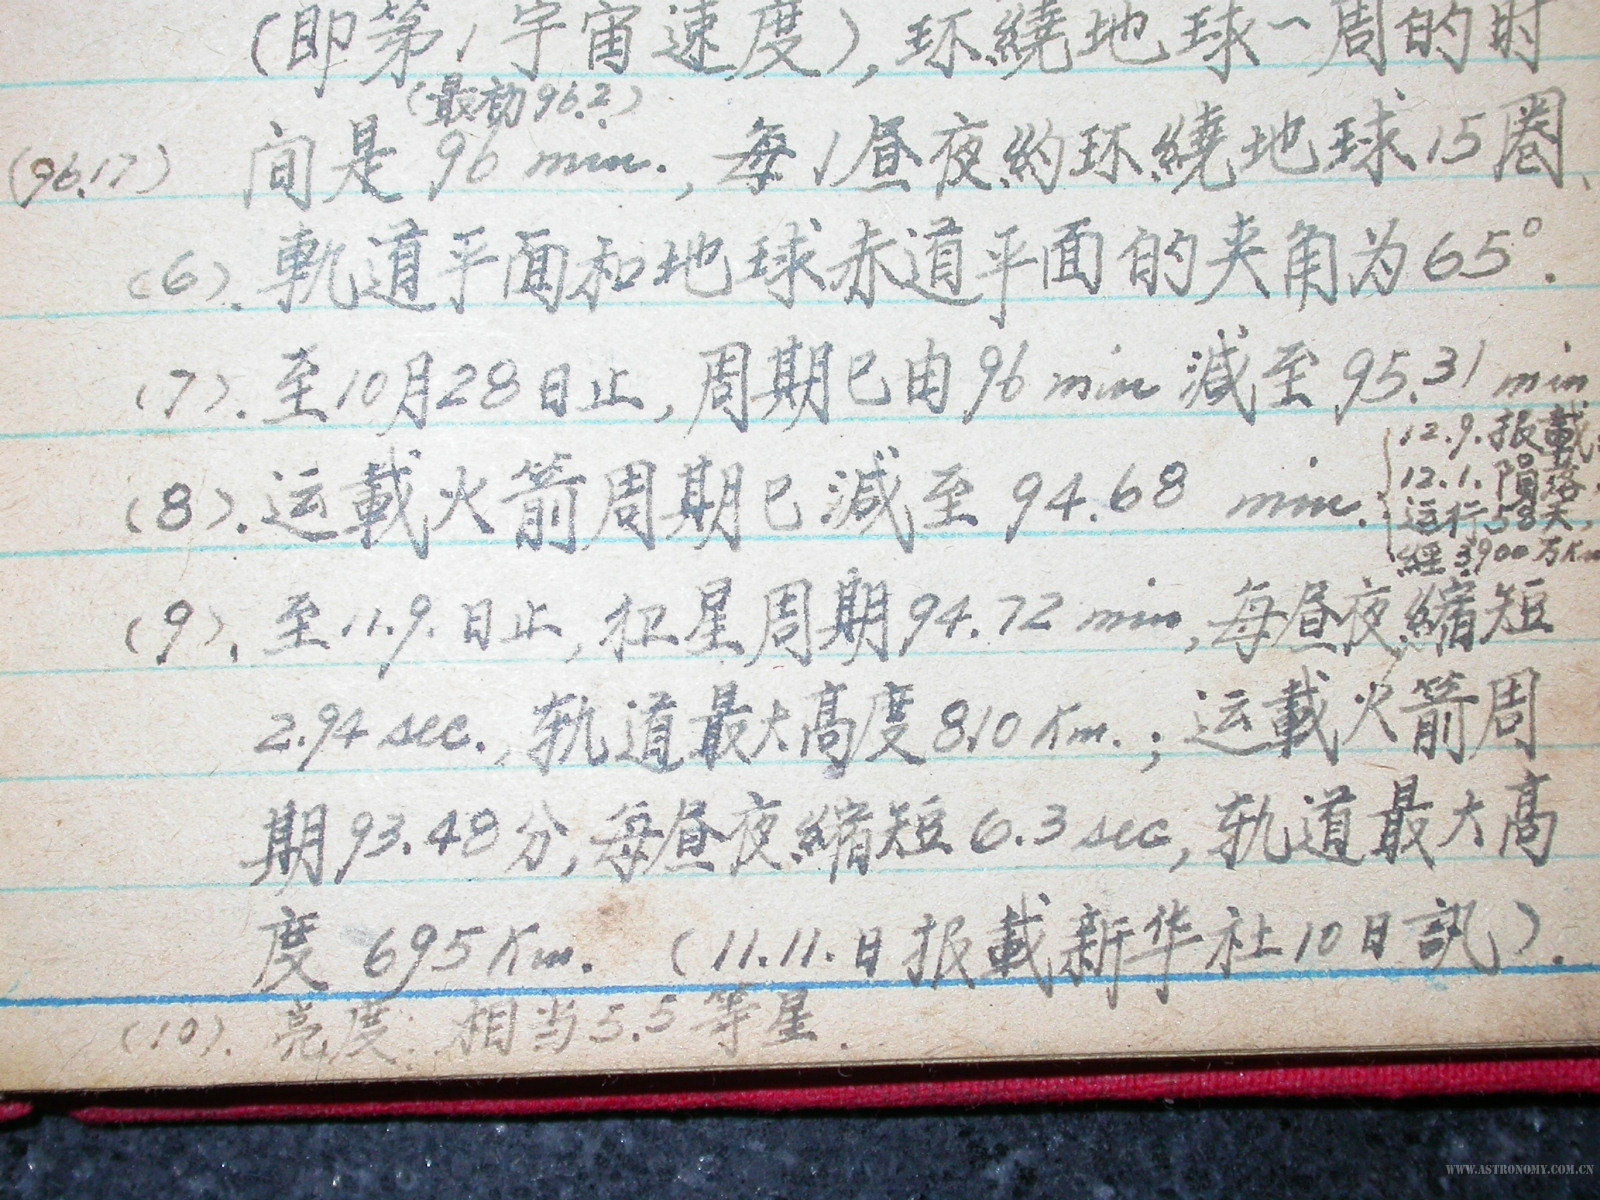 (即第1宇宙速度),环繞地球一周的时
(最初96.2)
(96.17) 间是96 min.,每1昼夜约环繞地球15圈、
(6). 軌道平面和地球赤道平面的夹角为65°.
(7). 至10月28日止,周期已由96 min 減至95.31 min
(8). 运載火箭周期已減至94.68 min.
12.9.报載:
12.1.隕落,
运行58天,
經3900万Km
(9). 至11.9.日止,卫星周期94.72 min,每昼夜縮短
2.94 sec.,轨道最大高度810 Km.;运載火箭周
期93.48分,每昼夜縮短6.3 sec,轨道最大高
度 695 Km. (11.11.日报載新华社10日訊).
(10). 亮度:相当5.5等星.
WWW.ASTRONOMY.COM.CN